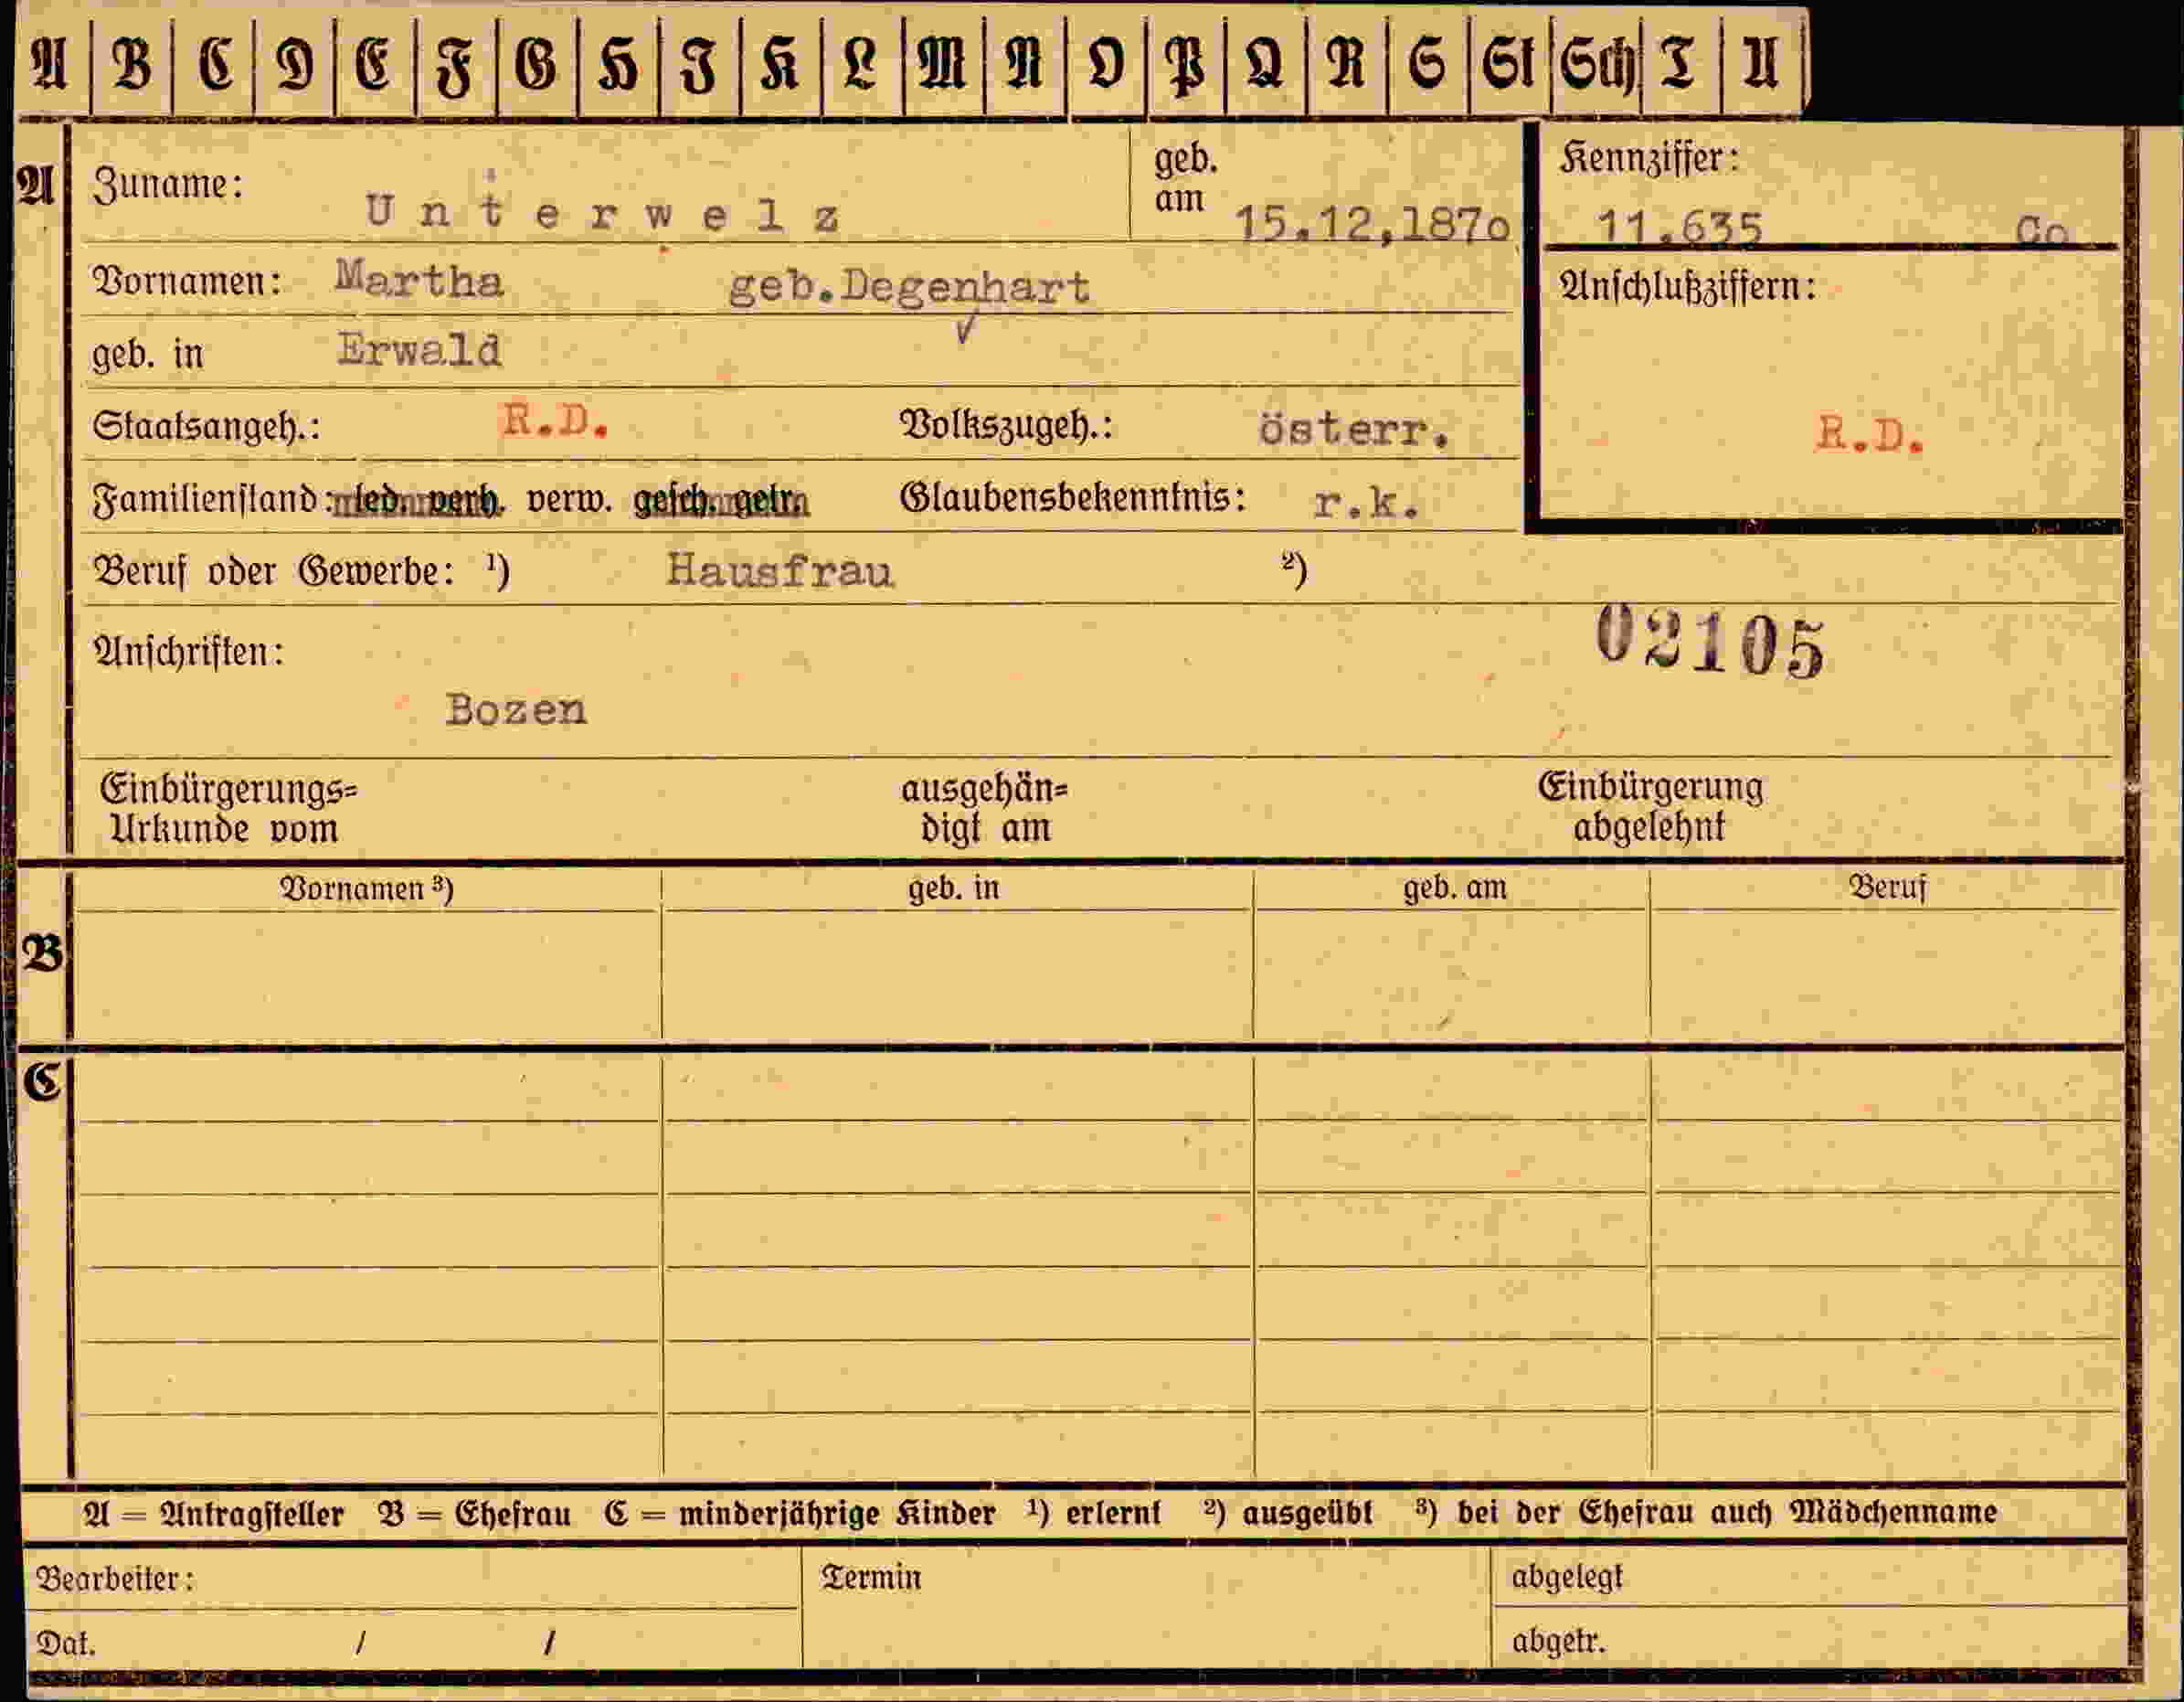 A B C D E F G H I K L M N O P Q R S St Sch T U
A Zuname: Unterwelz geb. am 15.12,1870 Kennziffer: 11.635 Co
Vornamen: Martha geb.Degenhart Anschlußziffern:
geb. in Erwald
Staatsangeh.: R.D. Volkszugeh.: österr. R.D.
Familienstand: led. verh. verw. gesch. getr. Glaubensbekenntnis: r.k.
Beruf oder Gewerbe: ¹) Hausfrau ²)
Anschriften: 02105
Bozen
Einbürgerungs= ausgehän= Einbürgerung
Urkunde vom digt am abgelehnt
Vornamen ³) geb. in geb. am Beruf
B
C
A = Antragsteller B = Ehefrau C = minderjährige Kinder ¹) erlernt ²) ausgeübt ³) bei der Ehefrau auch Mädchenname
Bearbeiter: Termin abgelegt
Dat. / / abgetr.